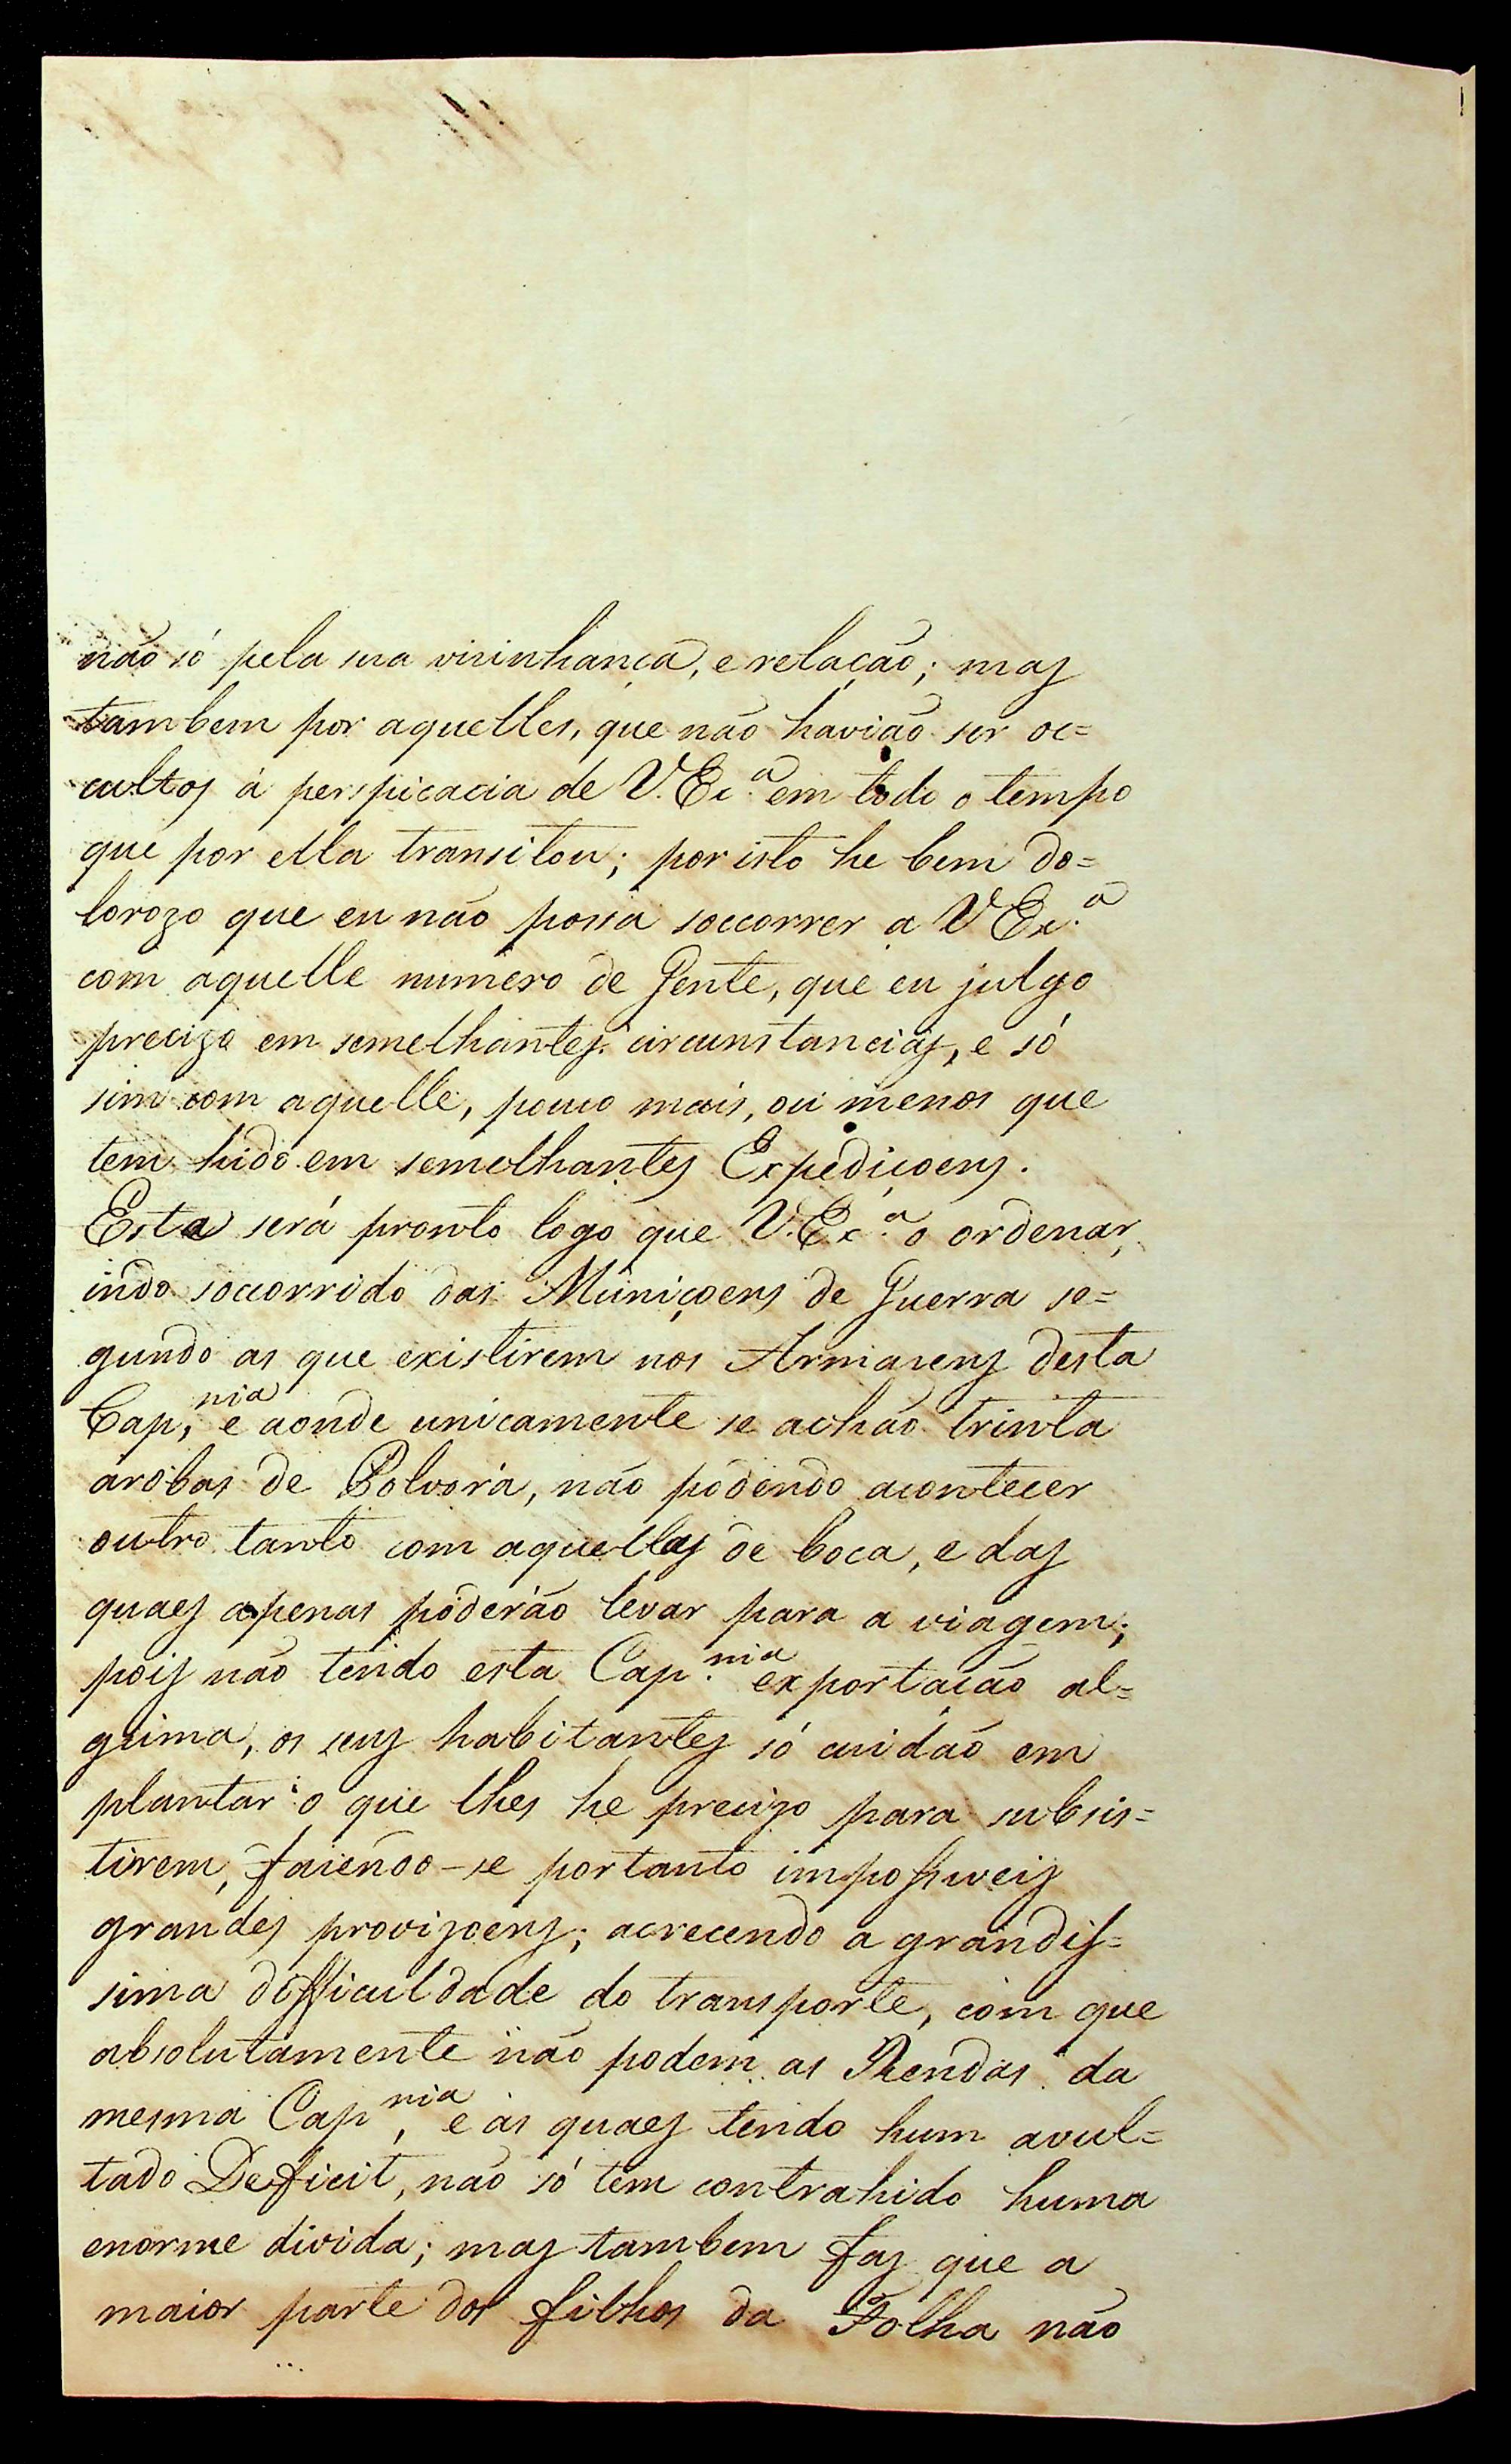 não só pela sua visinhança, e relação; mas
tambem por aquelles, que não havião ser oc=
cultos á perspicacia de V. Ex.ª em todo o tempo
que por ella transitou; por isto he bem do=
lorozo que eu não possa soccorrer a V Ex.ª
com aquelle numero de Gente, que eu julgo
precizo em semelhantes circunstancias, e só
sim com aquelle, pouco mais, ou menos que
tem hido em semelhantes Expediçoens.
Esta será pronto logo que V. Ex.ª o ordenar,
indo soccorrido das Muniçoens de Guerra se=
gundo as que existirem nos Armasens desta
Cap.nia, e aonde unicamente se achão trinta
arobas de Polvora, não podendo acontecer
outro tanto com aquellas de boca, e das
quaes apenas poderão levar para a viagem;
pois não tendo esta Cap.nia exportação al=
guma, os seus habitantes só cuidão em
plantar o que lhes he precizo para subsis=
tirem, fasendo-se portanto impossiveis
grandes provizoens; acrecendo a grandis=
sima difficuldade do transporte, com que
absolutamente não podem as Rendas da
mesma Capnia, e as quaes tendo hum avul=
tado Deficit, não só tem contrahido huma
enorme divida; mas tambem fas que a
maior parte dos filhos da Folha não